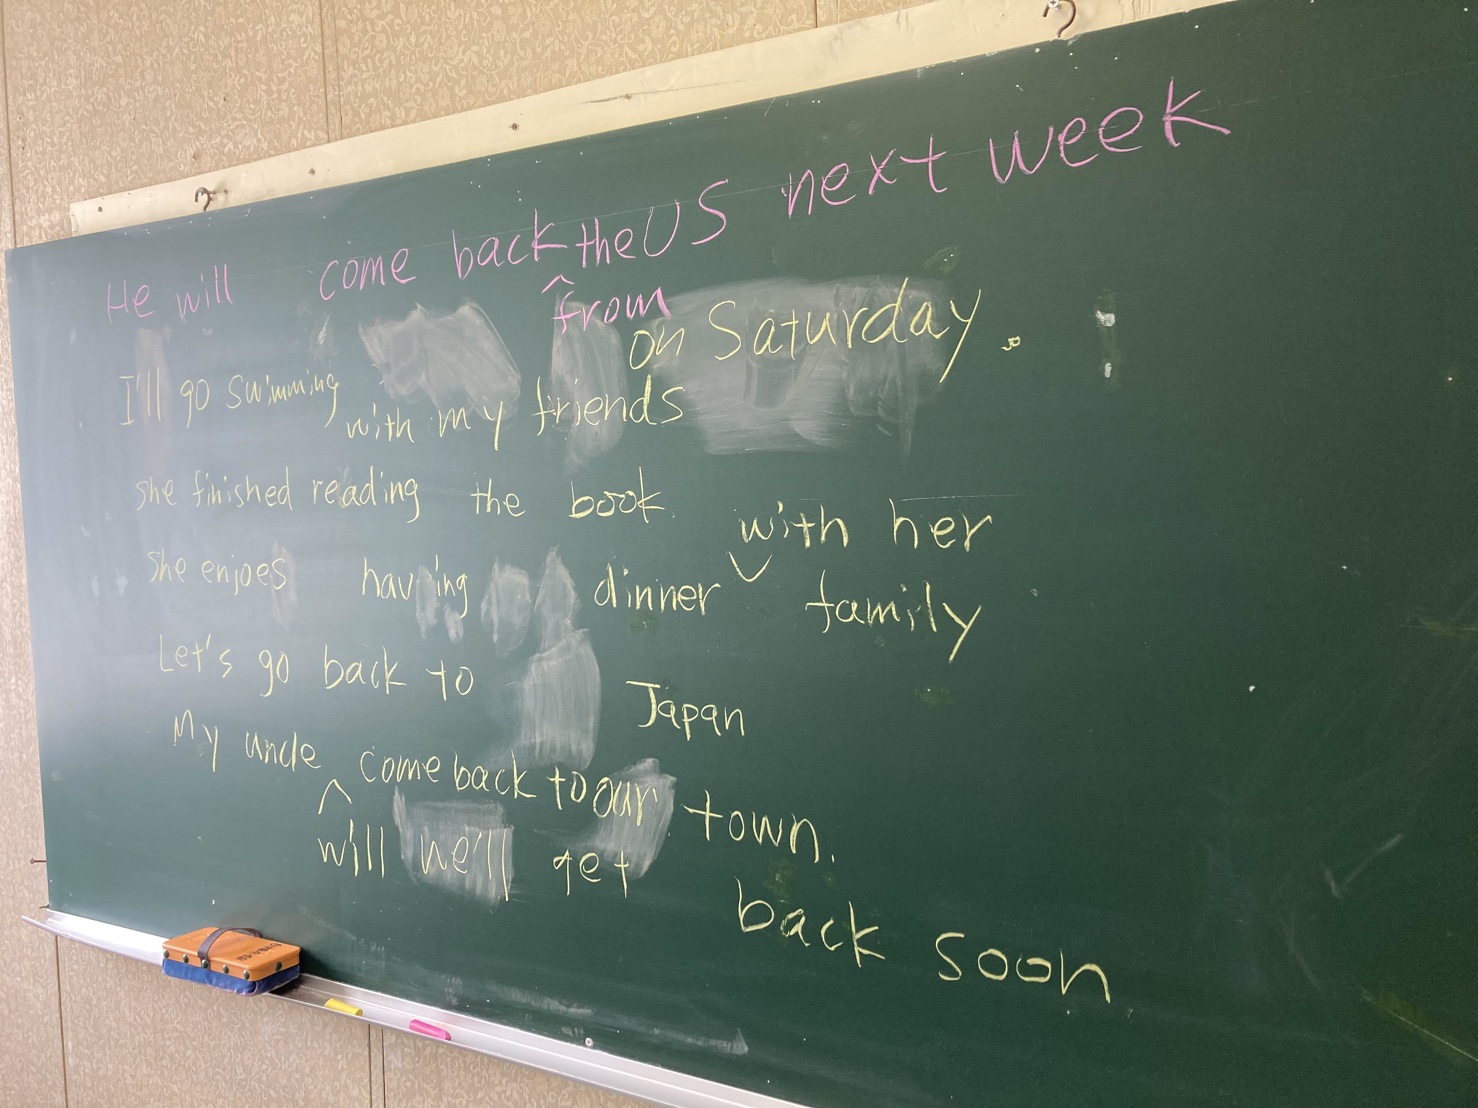 He will come back the US next week
from
on Saturday.
I'll go swimming with my friends
she finished reading the book
with her
she enjoes having dinner family
Let's go back to Japan
My uncle come back to our town.
will we'll get back soon